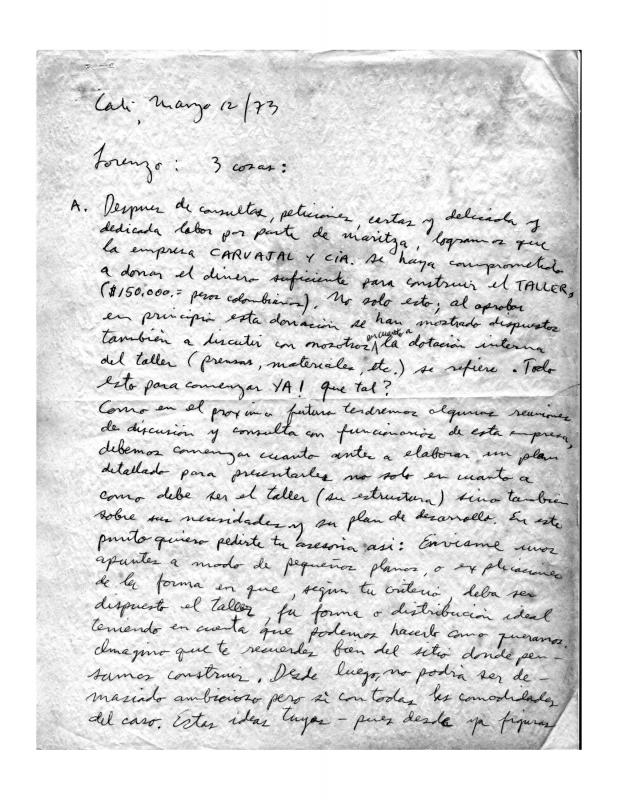 Cali, Marzo 12/73
Lorenzo: 3 cosas:
A. Despues de consultas, peticiones, cartas y delicada y
dedicada labor por parte de Maritza, logramos que
la empresa CARVAJAL Y CIA. se haya comprometido
a donar el dinero suficiente para construir el TALLER,
($150,000.= pesos colombianos). No solo esto; al aprobar
en principio esta donación se han mostrado dispuestos
también a discutir con nosotros en cuanto a la dotación interna
del taller (prensas, materiales, etc.) se refiere. Todo
esto para comenzar YA! que tal?
Como en el proximo futuro tendremos algunas reuniones
de discusión y consulta con funcionarios de esta empresa,
debemos comenzar cuanto antes a elaborar un plan
detallado para presentarles no solo en cuanto a
como debe ser el taller (su estructura) sino tambien
sobre sus necesidades y su plan de desarrollo. En este
punto quiero pedirte tu asesoria asi: Enviame unos
apuntes a modo de pequeños planos, o explicaciones
de la forma en que, según tu criterio, deba ser
dispuesto el taller, su forma o distribución ideal
teniendo en cuenta que podemos hacerlo como queramos.
Imagino que te recuerdes bien del sitio donde pen-
samos construir. Desde luego, no podria ser de-
masiado ambicioso pero si con todas las comodidades
del caso. Estas ideas tuyas - pues desde ya figuras